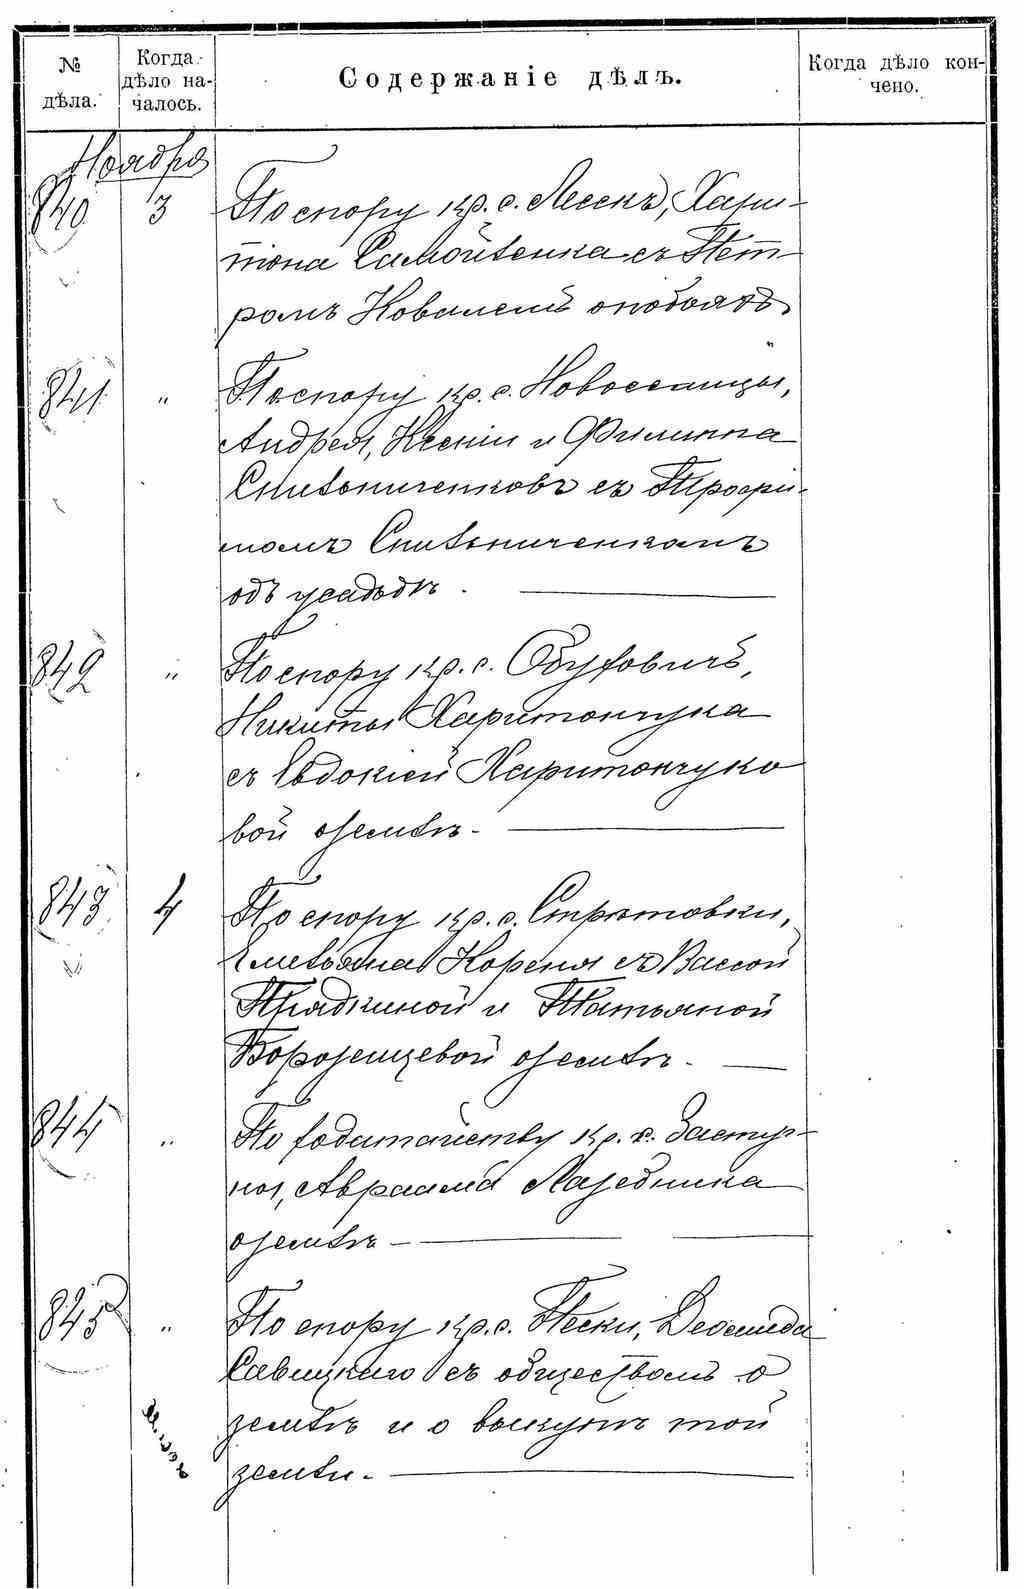 № дѣла.
Когда дѣло началось.
Содержаніе дѣлъ.
Когда дѣло кончено.
Ноября
840 3 По спору кр. с. Лесекъ, Хари-
тона Самойленка съ Пет-
ромъ Ковалемъ
841 " По спору кр. с. Новоселицы,
Андрея, Ксеніи и Филиппа
съ Трофи-
момъ
объ усадьбѣ.
842 " По спору кр. с. Обуховичъ,
Никиты Харитончука
съ Евдокіей Харитончуко
вой о землѣ-
843 4 По спору кр. с. Стрѣтовки,
Емельяна Кореня съ Вассой
Прядкиной и Татьяной
Борозенцевой о землѣ-
844 " По ходатайству кр. х. Заступ-
ны, Авраама Лазебника
о землѣ-
845 " По спору кр. с. Пески, Деомида
Савицкаго съ обществомъ о
землѣ и о выкупѣ той
земли-